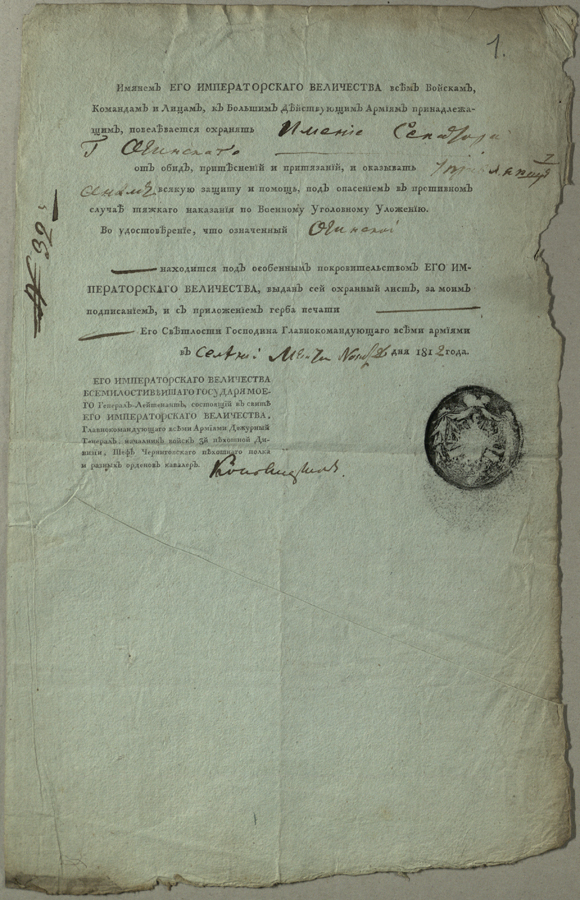 1.
Имянемъ ЕГО ИМПЕРАТОРСКАГО ВЕЛИЧЕСТВА всѣмъ Войскамъ,
Командамъ и Лицамъ, къ Большимъ Дѣйствующимъ Арміямъ принадлежа-
щимъ, повелѣвается охранять Имѣніе Сенатора
Г Огинскаго
отъ обидъ, притѣсненій и притязаній, и оказывать
всякую защиту и помощь, подъ опасеніемъ въ противномъ
случаѣ тяжкаго наказанія по Военному Уголовному Уложенію.
Во удостовѣреніе, что означенный Огинской
находится подъ особеннымъ покровительствомъ ЕГО ИМ-
ПЕРАТОРСКАГО ВЕЛИЧЕСТВА, выданъ сей охранный листъ, за моимъ
подписаніемъ, и съ приложеніемъ герба печати
Его Свѣтлости Господина Главнокомандующаго всѣми арміями
въ дня 1812 года.
ЕГО ИМПЕРАТОРСКАГО ВЕЛИЧЕСТВА
ВСЕМИЛОСТИВѢЙШАГО ГОСУДАРЯ МОЕ-
ГО Генералъ-Лейтенантъ, состоящій въ свитѣ
ЕГО ИМПЕРАТОРСКАГО ВЕЛИЧЕСТВА,
Главнокомандующаго всѣми Арміями Дежурный
Генералъ, начальникъ войскъ 3й пѣхотной Ди-
визіи, Шефъ Черниговскаго пѣхотнаго полка
и разныхъ орденовъ кавалеръ. Коновницынъ.